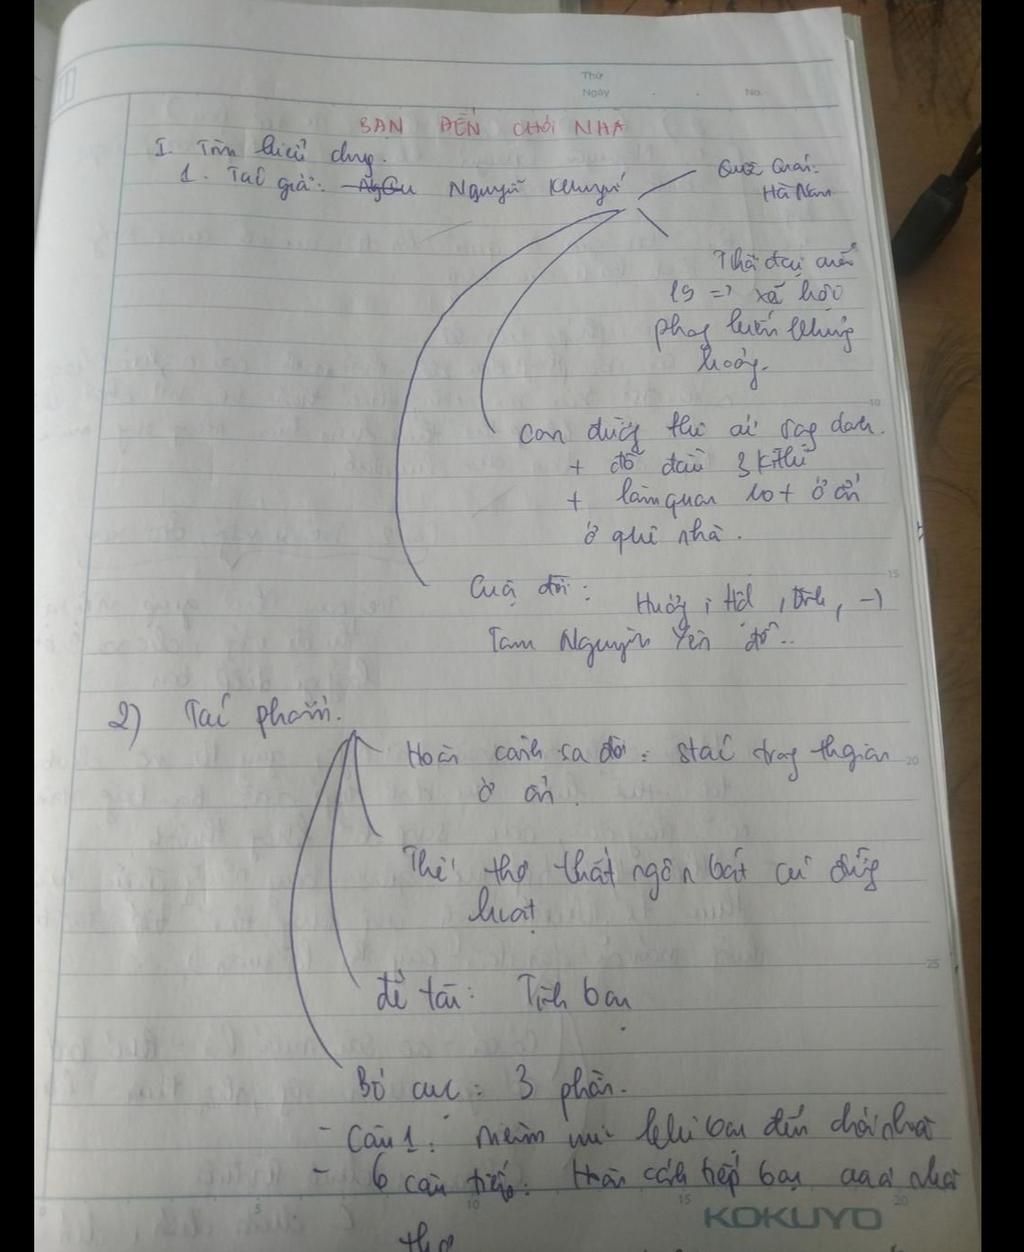 Thứ
Ngày . . No.
BẠN ĐẾN CHƠI NHÀ
I. Tìm hiểu chug.
1. Tác giả: Nguyễn Khuyế
Quê Quán:
Hà Nam
Thời đại
19 => xã hội
phog kiến khủng
hoảg.
10
Con đườg thi
+ đỗ đầu 3 kì thi
+ làm quan 10 + ở ẩn
ở quê nhà.
15
Cuộ đời: Hươg,
Tam Nguyên Yên đổ..
2) Tác phẩm.
Hoàn cảnh ra đời: stác trog thgian
20
ở ẩn.
Thể thơ thất ngôn bát cú đườg
luật
25
đề tài: Tình bạn
Bố cục: 3 phần.
- Câu 1: niềm vui khi bạn đến chơi nhà
- 6 câu tiếp: cảnh tiếp bạn nhà
5 10 15 20
KOKUYO
thơ